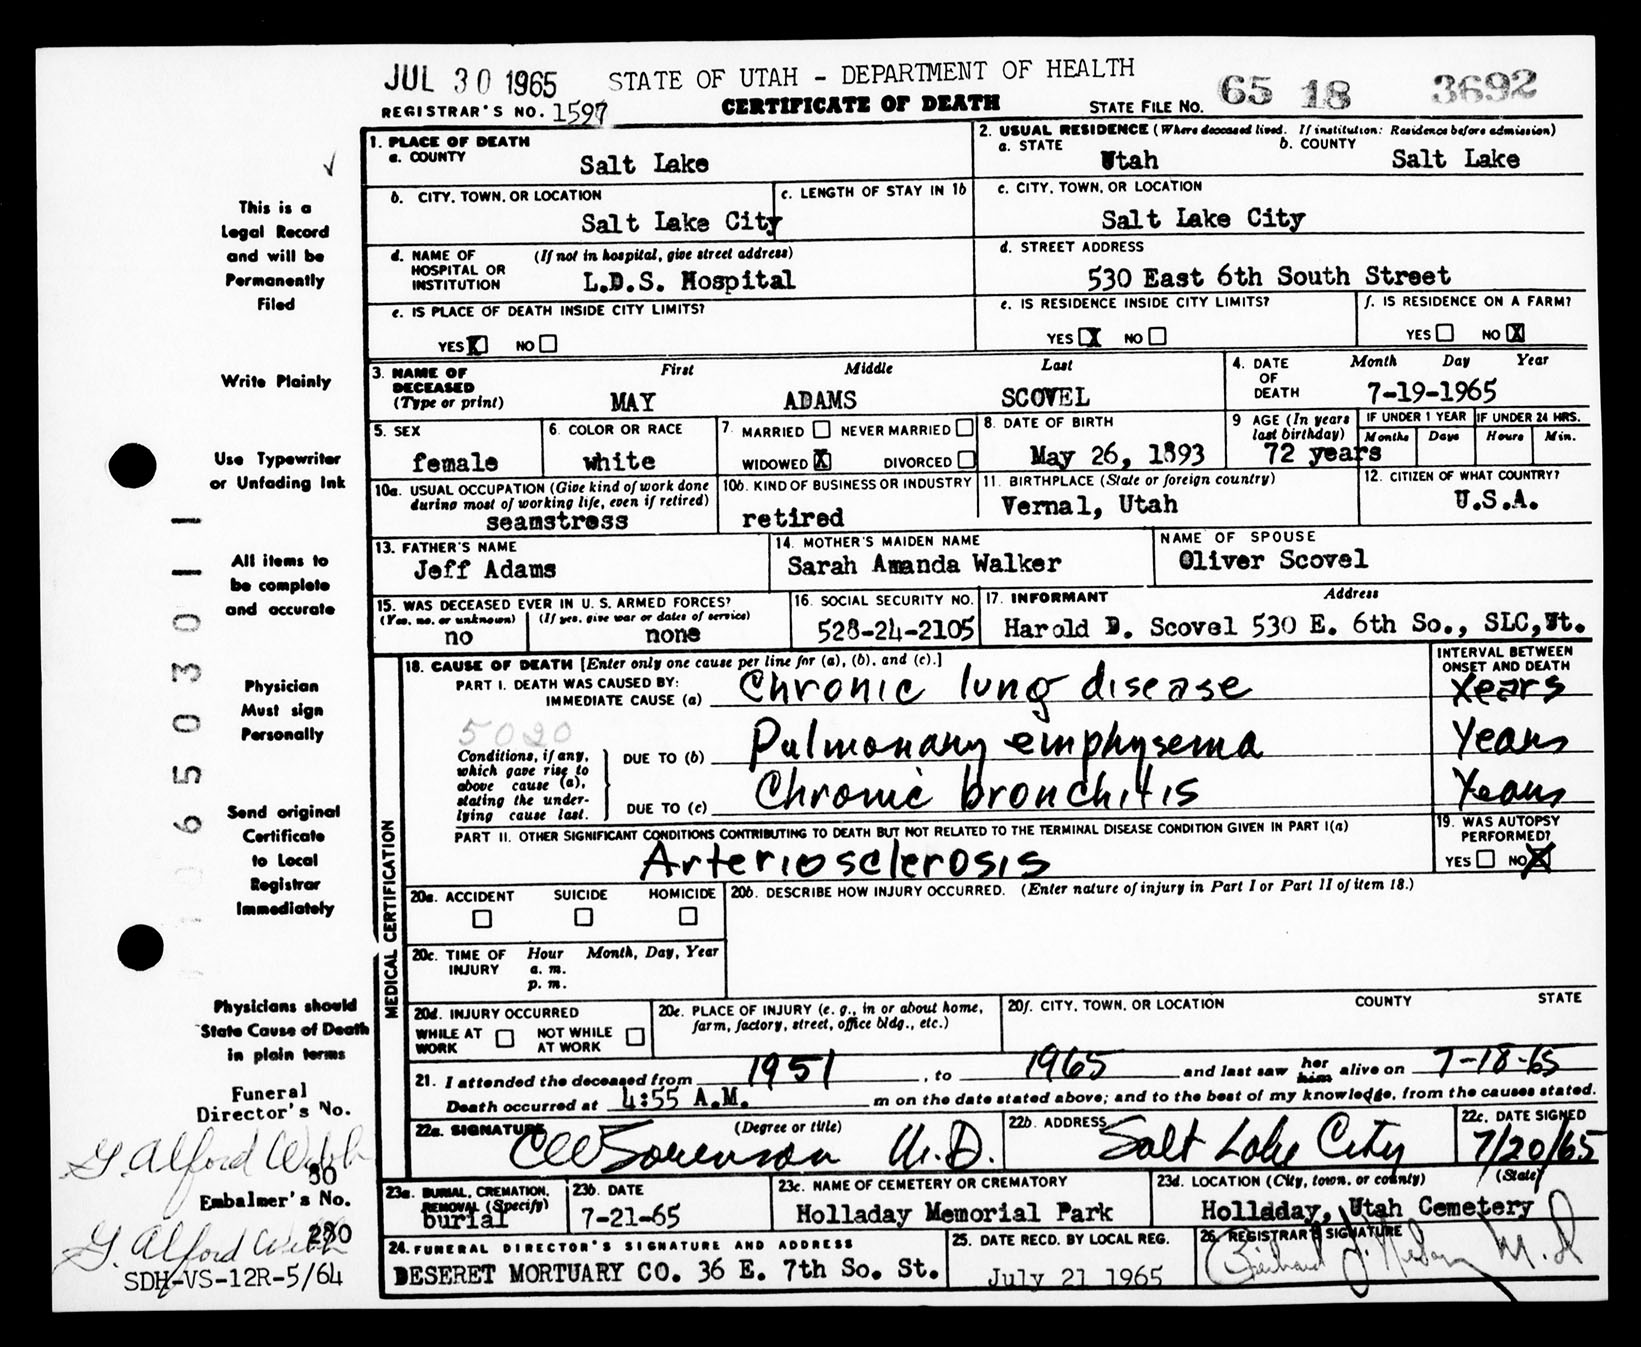 JUL 30 1965 STATE OF UTAH - DEPARTMENT OF HEALTH
REGISTRAR'S NO. 1597 CERTIFICATE OF DEATH STATE FILE NO. 65 18 3692
1. PLACE OF DEATH
a. COUNTY
Salt Lake
2. USUAL RESIDENCE (Where deceased lived. If institution: Residence before admission)
a. STATE Utah b. COUNTY Salt Lake
b. CITY, TOWN, OR LOCATION
Salt Lake City
c. LENGTH OF STAY IN 1b
c. CITY, TOWN, OR LOCATION
Salt Lake City
d. NAME OF HOSPITAL OR INSTITUTION (If not in hospital, give street address)
L.D.S. Hospital
d. STREET ADDRESS
530 East 6th South Street
e. IS PLACE OF DEATH INSIDE CITY LIMITS?
YES X NO
e. IS RESIDENCE INSIDE CITY LIMITS?
YES X NO
f. IS RESIDENCE ON A FARM?
YES NO X
3. NAME OF DECEASED (Type or print)
First Middle Last
MAY ADAMS SCOVEL
4. DATE OF DEATH Month Day Year
7-19-1965
5. SEX
female
6. COLOR OR RACE
white
7. MARRIED NEVER MARRIED
WIDOWED X DIVORCED
8. DATE OF BIRTH
May 26, 1893
9 AGE (In years last birthday)
72 years
IF UNDER 1 YEAR IF UNDER 24 HRS.
Months Days Hours Min.
10a. USUAL OCCUPATION (Give kind of work done during most of working life, even if retired)
seamstress
10b. KIND OF BUSINESS OR INDUSTRY
retired
11. BIRTHPLACE (State or foreign country)
Vernal, Utah
12. CITIZEN OF WHAT COUNTRY?
U.S.A.
13. FATHER'S NAME
Jeff Adams
14. MOTHER'S MAIDEN NAME
Sarah Amanda Walker
NAME OF SPOUSE
Oliver Scovel
15. WAS DECEASED EVER IN U. S. ARMED FORCES?
(Yes, no, or unknown) (If yes, give war or dates of service)
no none
16. SOCIAL SECURITY NO.
528-24-2105
17. INFORMANT Address
Harold D. Scovel 530 E. 6th So., SLC, Ut.
MEDICAL CERTIFICATION
18. CAUSE OF DEATH [Enter only one cause per line for (a), (b), and (c).]
PART I. DEATH WAS CAUSED BY:
IMMEDIATE CAUSE (a) Chronic lung disease
INTERVAL BETWEEN ONSET AND DEATH
Years
5020
Conditions, if any, which gave rise to above cause (a), stating the underlying cause last.
DUE TO (b) Pulmonary emphysema Years
DUE TO (c) Chronic bronchitis Years
PART II. OTHER SIGNIFICANT CONDITIONS CONTRIBUTING TO DEATH BUT NOT RELATED TO THE TERMINAL DISEASE CONDITION GIVEN IN PART I(a)
Arteriosclerosis
19. WAS AUTOPSY PERFORMED?
YES NO X
20a. ACCIDENT SUICIDE HOMICIDE
20b. DESCRIBE HOW INJURY OCCURRED. (Enter nature of injury in Part I or Part II of item 18.)
20c. TIME OF INJURY Hour Month, Day, Year
a. m.
p. m.
20d. INJURY OCCURRED
WHILE AT WORK NOT WHILE AT WORK
20e. PLACE OF INJURY (e. g., in or about home, farm, factory, street, office bldg., etc.)
20f. CITY, TOWN, OR LOCATION COUNTY STATE
21. I attended the deceased from 1951, to 1965 and last saw her him alive on 7-18-65
Death occurred at 4:55 A.M. m on the date stated above; and to the best of my knowledge, from the causes stated.
22a. SIGNATURE (Degree or title)
Sorenson M.D.
22b. ADDRESS
Salt Lake City
22c. DATE SIGNED
7/20/65
23a. BURIAL, CREMATION, REMOVAL (Specify)
burial
23b. DATE
7-21-65
23c. NAME OF CEMETERY OR CREMATORY
Holladay Memorial Park
23d. LOCATION (City, town, or county) (State)
Holladay, Utah Cemetery
24. FUNERAL DIRECTOR'S SIGNATURE AND ADDRESS
DESERET MORTUARY CO. 36 E. 7th So. St.
25. DATE RECD. BY LOCAL REG.
July 21 1965
26. REGISTRAR'S SIGNATURE
M.D
This is a
Legal Record
and will be
Permanently
Filed
Write Plainly
Use Typewriter
or Unfading Ink
All items to
be complete
and accurate
Physician
Must sign
Personally
Send original
Certificate
to Local
Registrar
Immediately
Physicians should
State Cause of Death
in plain terms
Funeral
Director's No.
G. Alford Webb
50
Embalmer's No.
280
G. Alford Webb
SDH-VS-12R-5/64